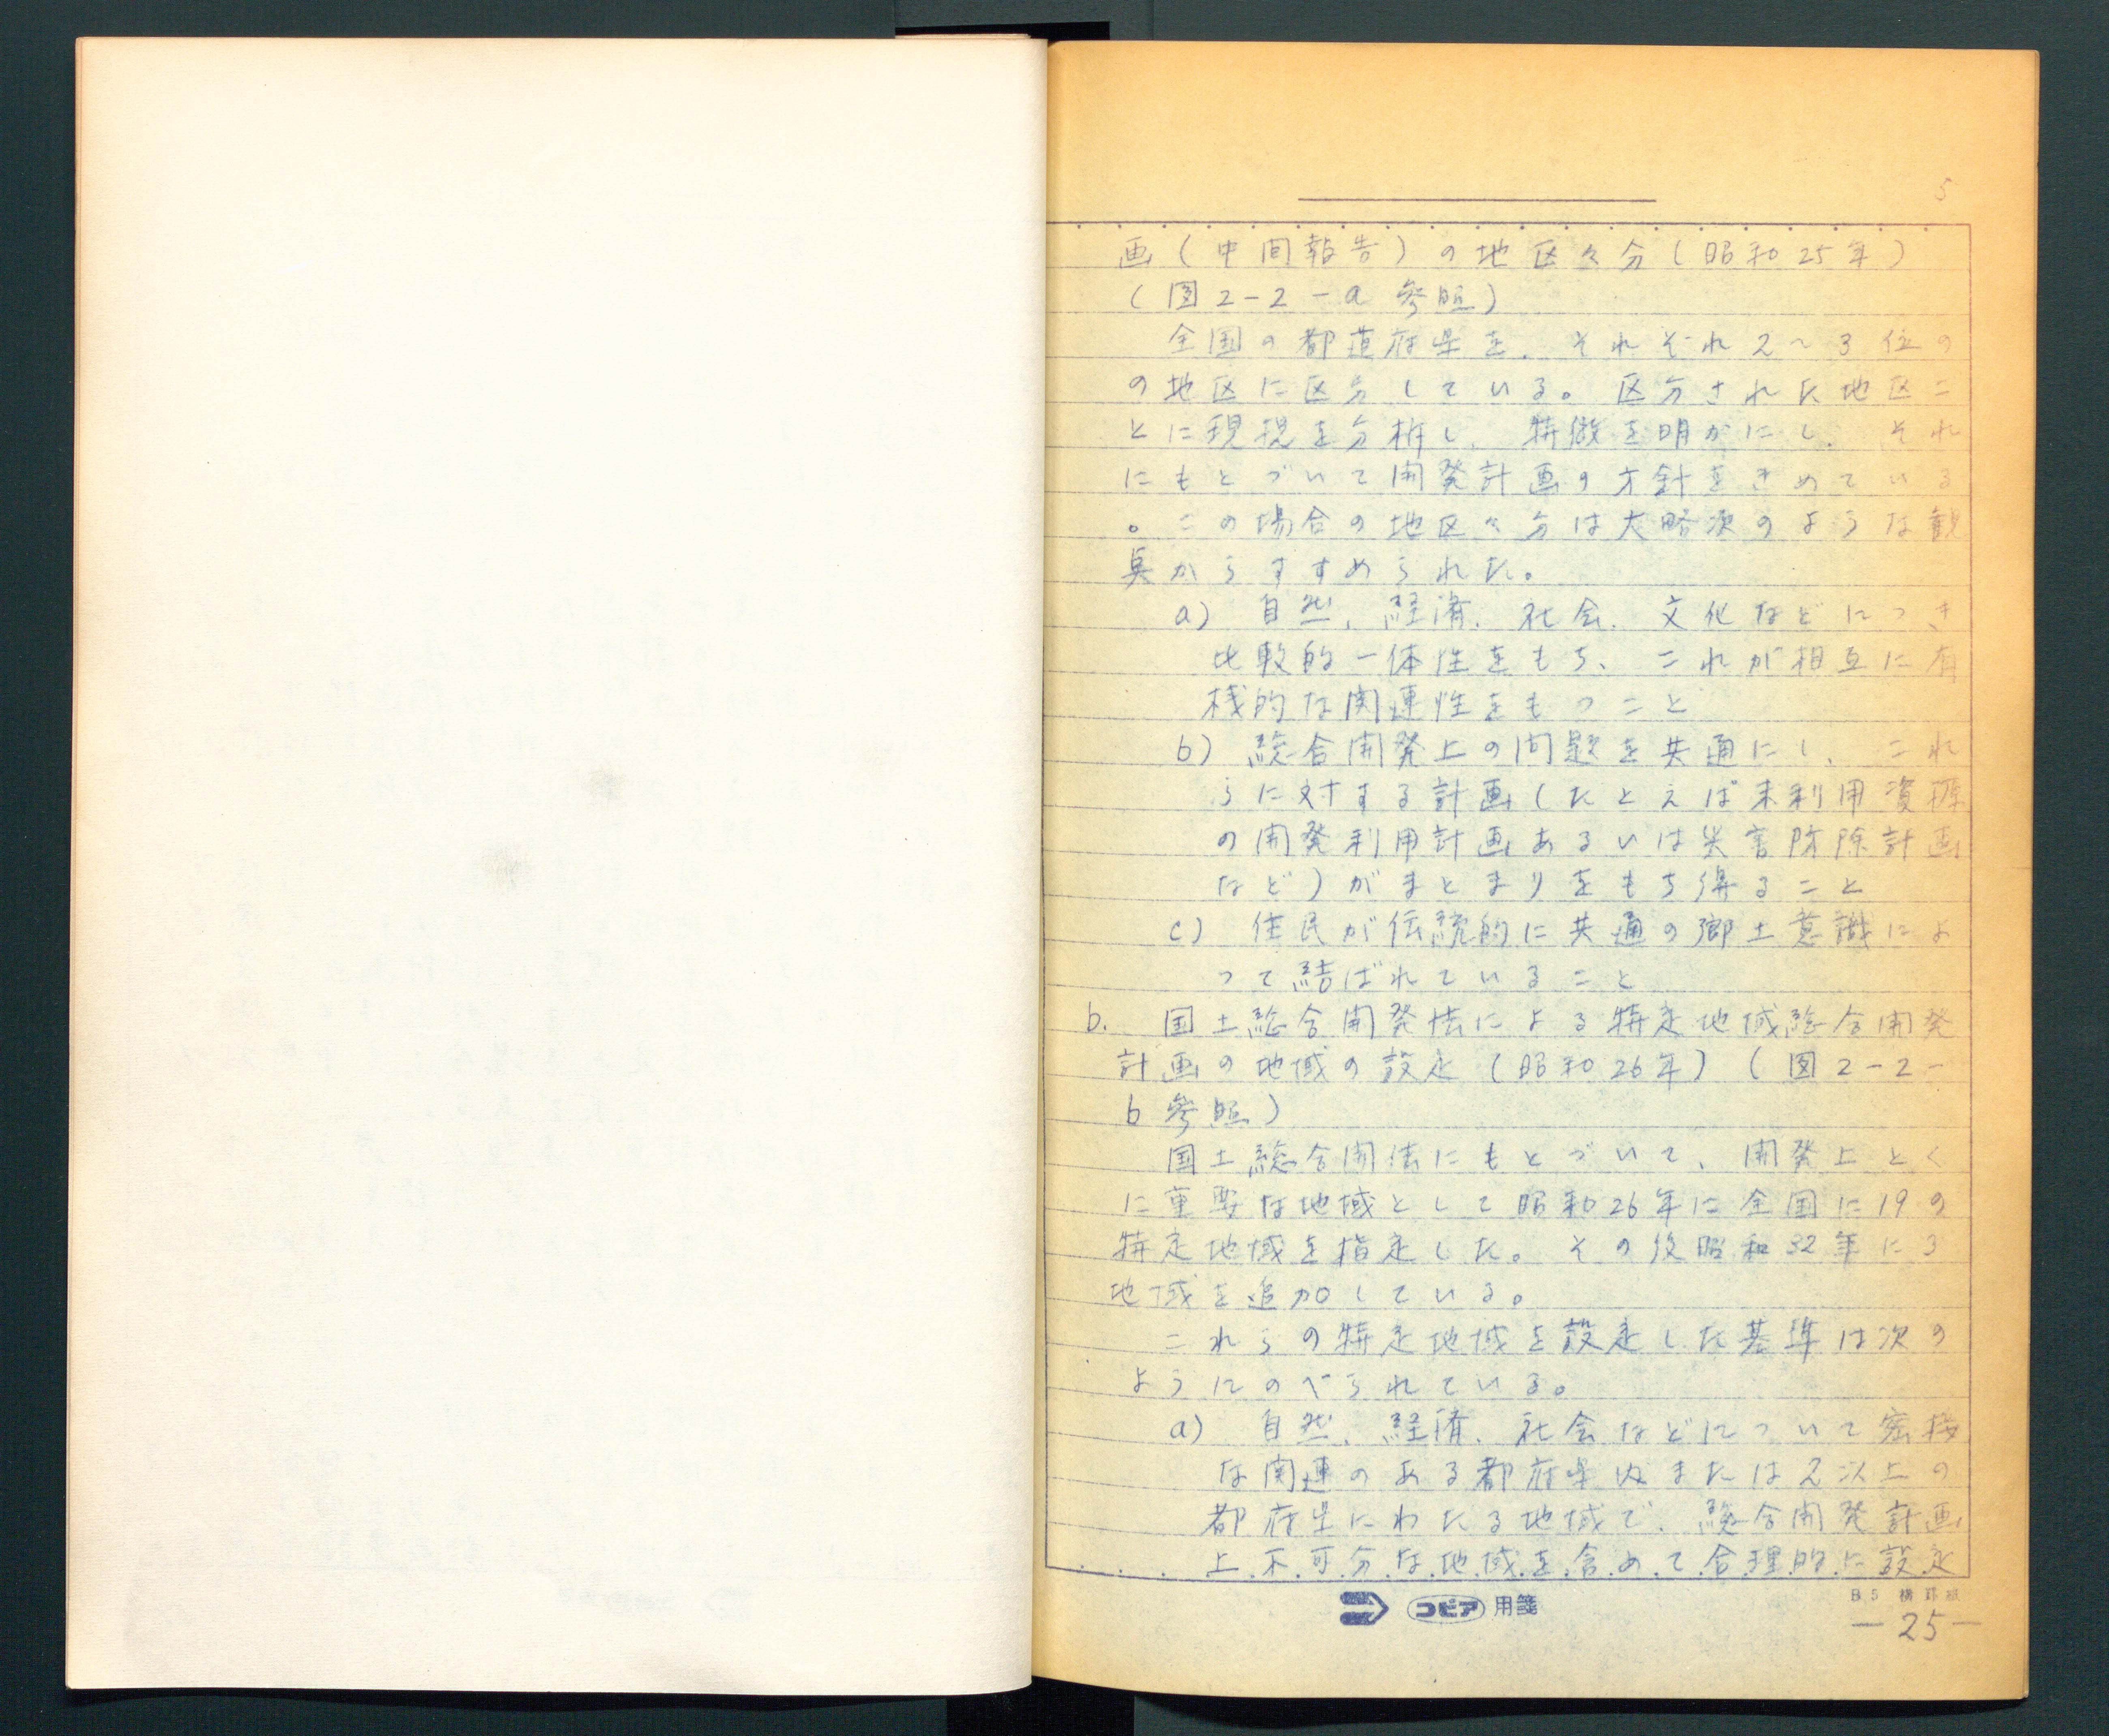 5
画(中間報告)の地区々分(昭和25年)
(図2-2-a 参照)
全国の都道府県を、それぞれ2〜3位の
の地区に区分している。区分された地区ご
とに現況を分析し、特徴を明かにし、それ
にもとづいて開発計画の方針をきめている
。この場合の地区々分は大略次のような観
点からすすめられた。
a) 自然、経済、社会、文化などにつき
比較的一体性をもち、これが相互に有
機的な関連性をもつこと
b) 総合開発上の問題を共通にし、これ
らに対する計画(たとえば未利用資源
の開発利用計画あるいは災害防除計画
など)がまとまりをもち得ること
c) 住民が伝統的に共通の郷土意識によ
って結ばれていること
b. 国土総合開発法による特定地域総合開発
計画の地域の設定(昭和26年)(図2-2-
b 参照)
国土総合開法にもとづいて、開発上とく
に重要な地域として昭和26年に全国に19の
特定地域を指定した。その後昭和32年に3
地域を追加している。
これらの特定地域を設定した基準は次の
ようにのべられている。
a) 自然、経済、社会などについて密接
な関連のある都府県内または2以上の
都府県にわたる地域で、総合開発計画
上不可分な地域を含めて合理的に設定
コピア 用箋
B5 横罫紙
-25-